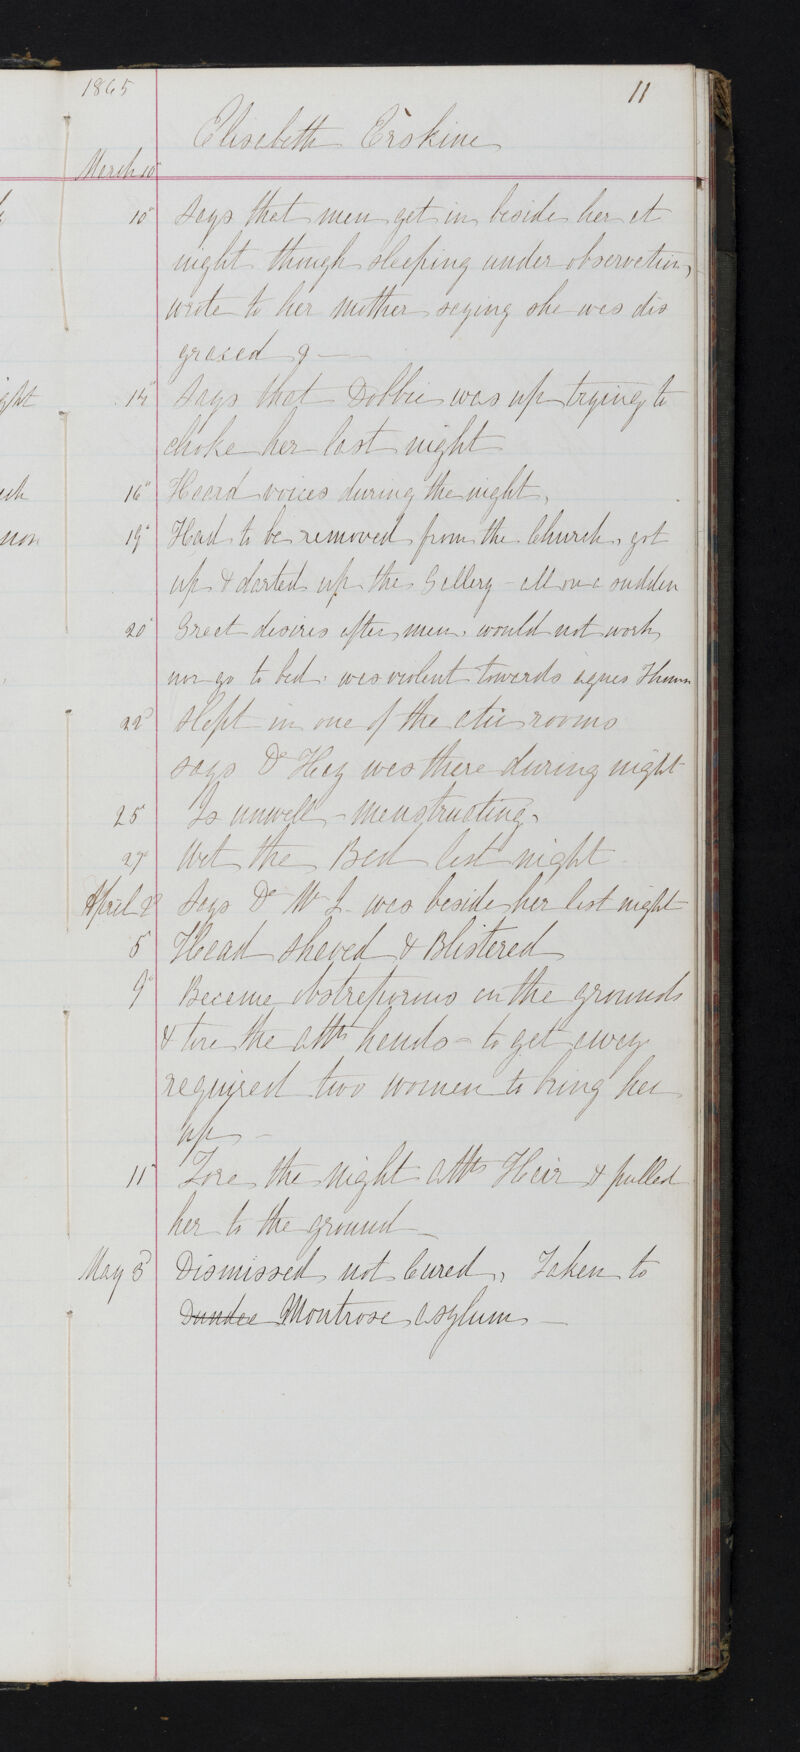 1865
11
Elisabeth Erskine
March 10
10 Says that men get in beside her at
night though sleeping under observation,
wrote to her mother saying she was dis
graced &—
ght
14 Says that Dobbie was up trying to
choke her last night
16 Heard voices during the night,
19 Had to be removed from the Church, got
up & darted up the Gallery – all on a sudden
20 Great desires after men, would not work
nor go to bed. was violent towards agnes
22 Slept in one of the attic rooms
says Dr Hay was there during night
25 Is unwell – menstruating.
27 Wet the Bed last night
April 2 Says Dr W L was beside her last night
5 Head shaved & Blistered
9 Became obstreporous on the grounds
& tore the atts hands – to get away
required two women to bring her
up –
11 Tore the night atts Hair & pulled
her to the ground –
May 5 Dismissed not Cured, Taken to
Dundee Montrose asylum —